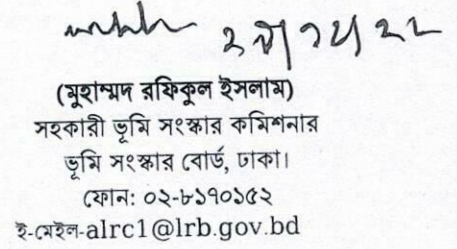 (মুহাম্মদ রফিকুল ইসলাম)
সহকারী ভূমি সংস্কার কমিশনার
ভূমি সংস্কার বোর্ড, ঢাকা।
ফোন: ০২-৮১৭০১৫২
ই-মেইল-alrc1@lrb.gov.bd